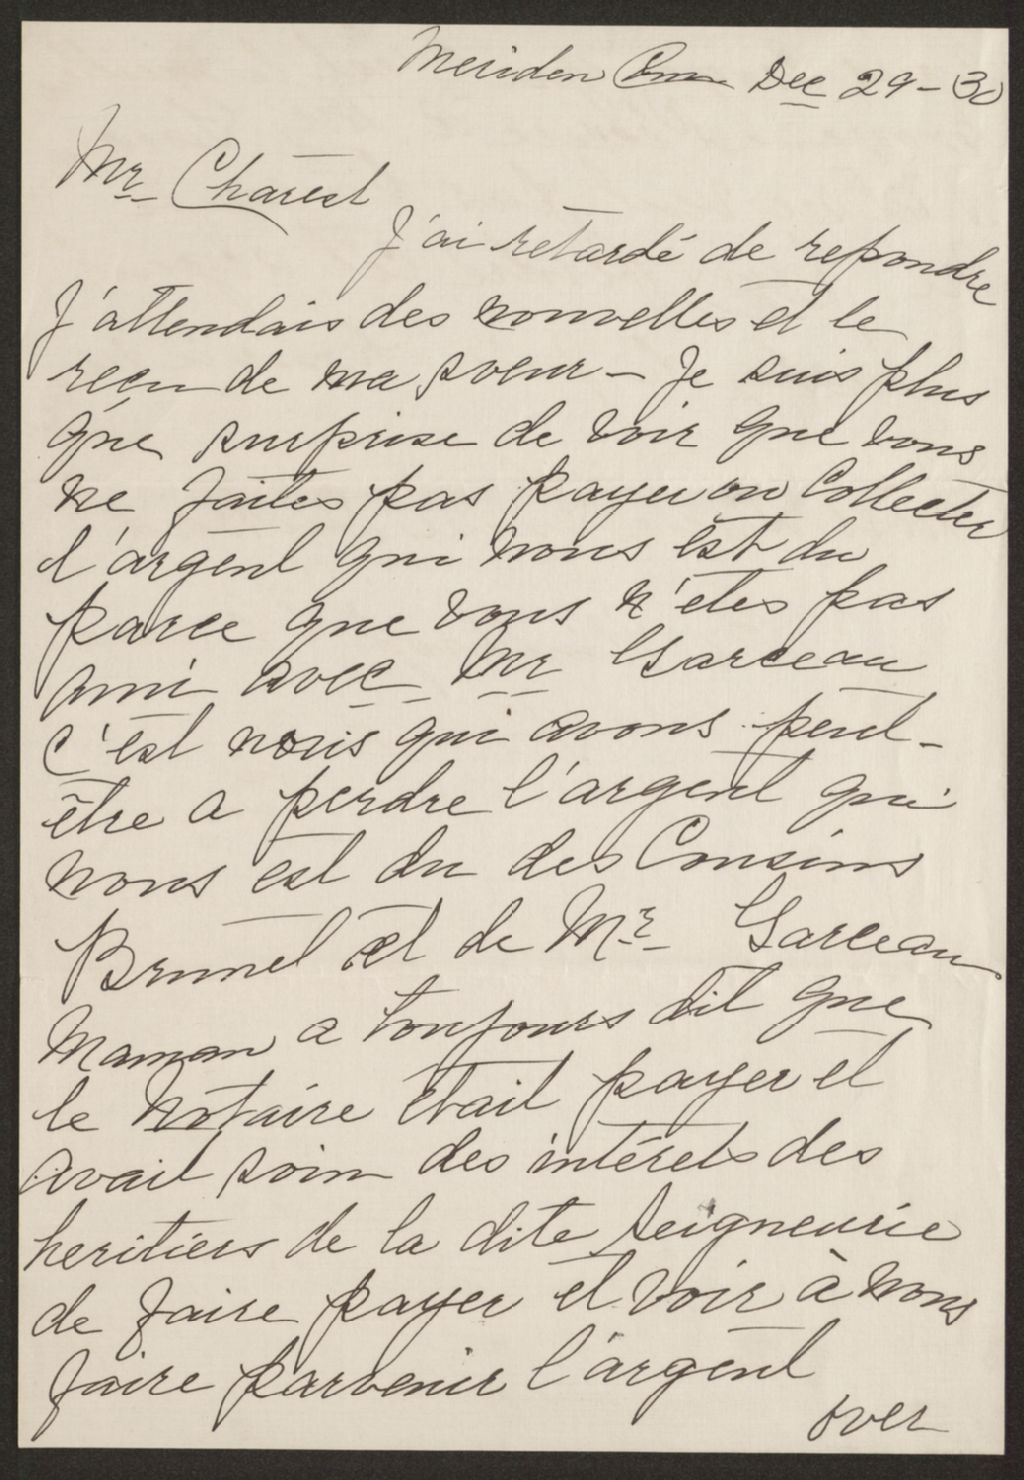 Meriden Conn Dec 29-30
Mr Charest
J'ai retardé de repondre
J'attendais des nouvelles et le
recu de ma soeur - Je suis plus
que surprise de voir que vous
ne faites pas payer ou Collecter
l'argent qui nous est du
parce que vous n'etes pas
ami avec Mr Garceau
C'est nous qui avons peut-
être a perdre l'argent qui
nous est du des Cousins
Brunel et de Mr Garceau
Maman a toujours dit que
le Notaire était payer et
avait soin des intérets des
heritiers de la dite Seigneurie
de faire payer et voir à nous
faire parvenir l'argent
over